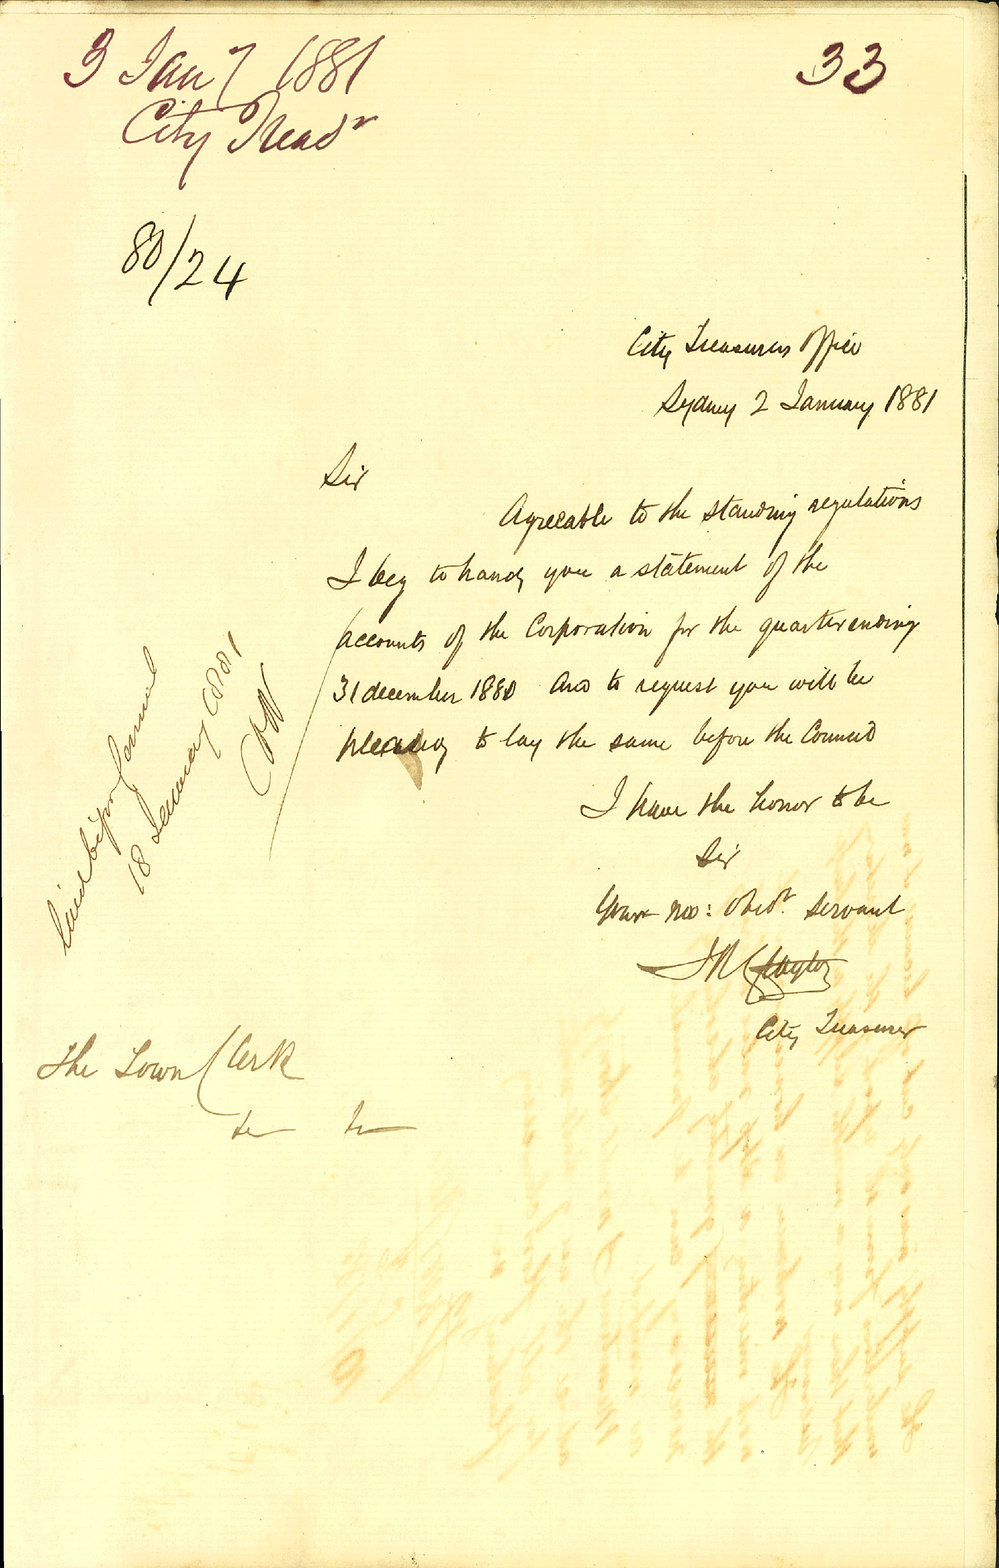 3 Jany 1881
City Treasr
33
80/24
City Treasurers Office
Sydney 2 January 1881
Sir
Agreeable to the standing regulations
I beg to hand you a statement of the
accounts of the Corporation for the quarter ending
31 december 1880 and to request you will be
pleased to lay the same before the Council
I have the honor to be
Sir
Your mo: obedt. servant
City Treasurer
laid before Council
18 January 1881
The Town Clerk